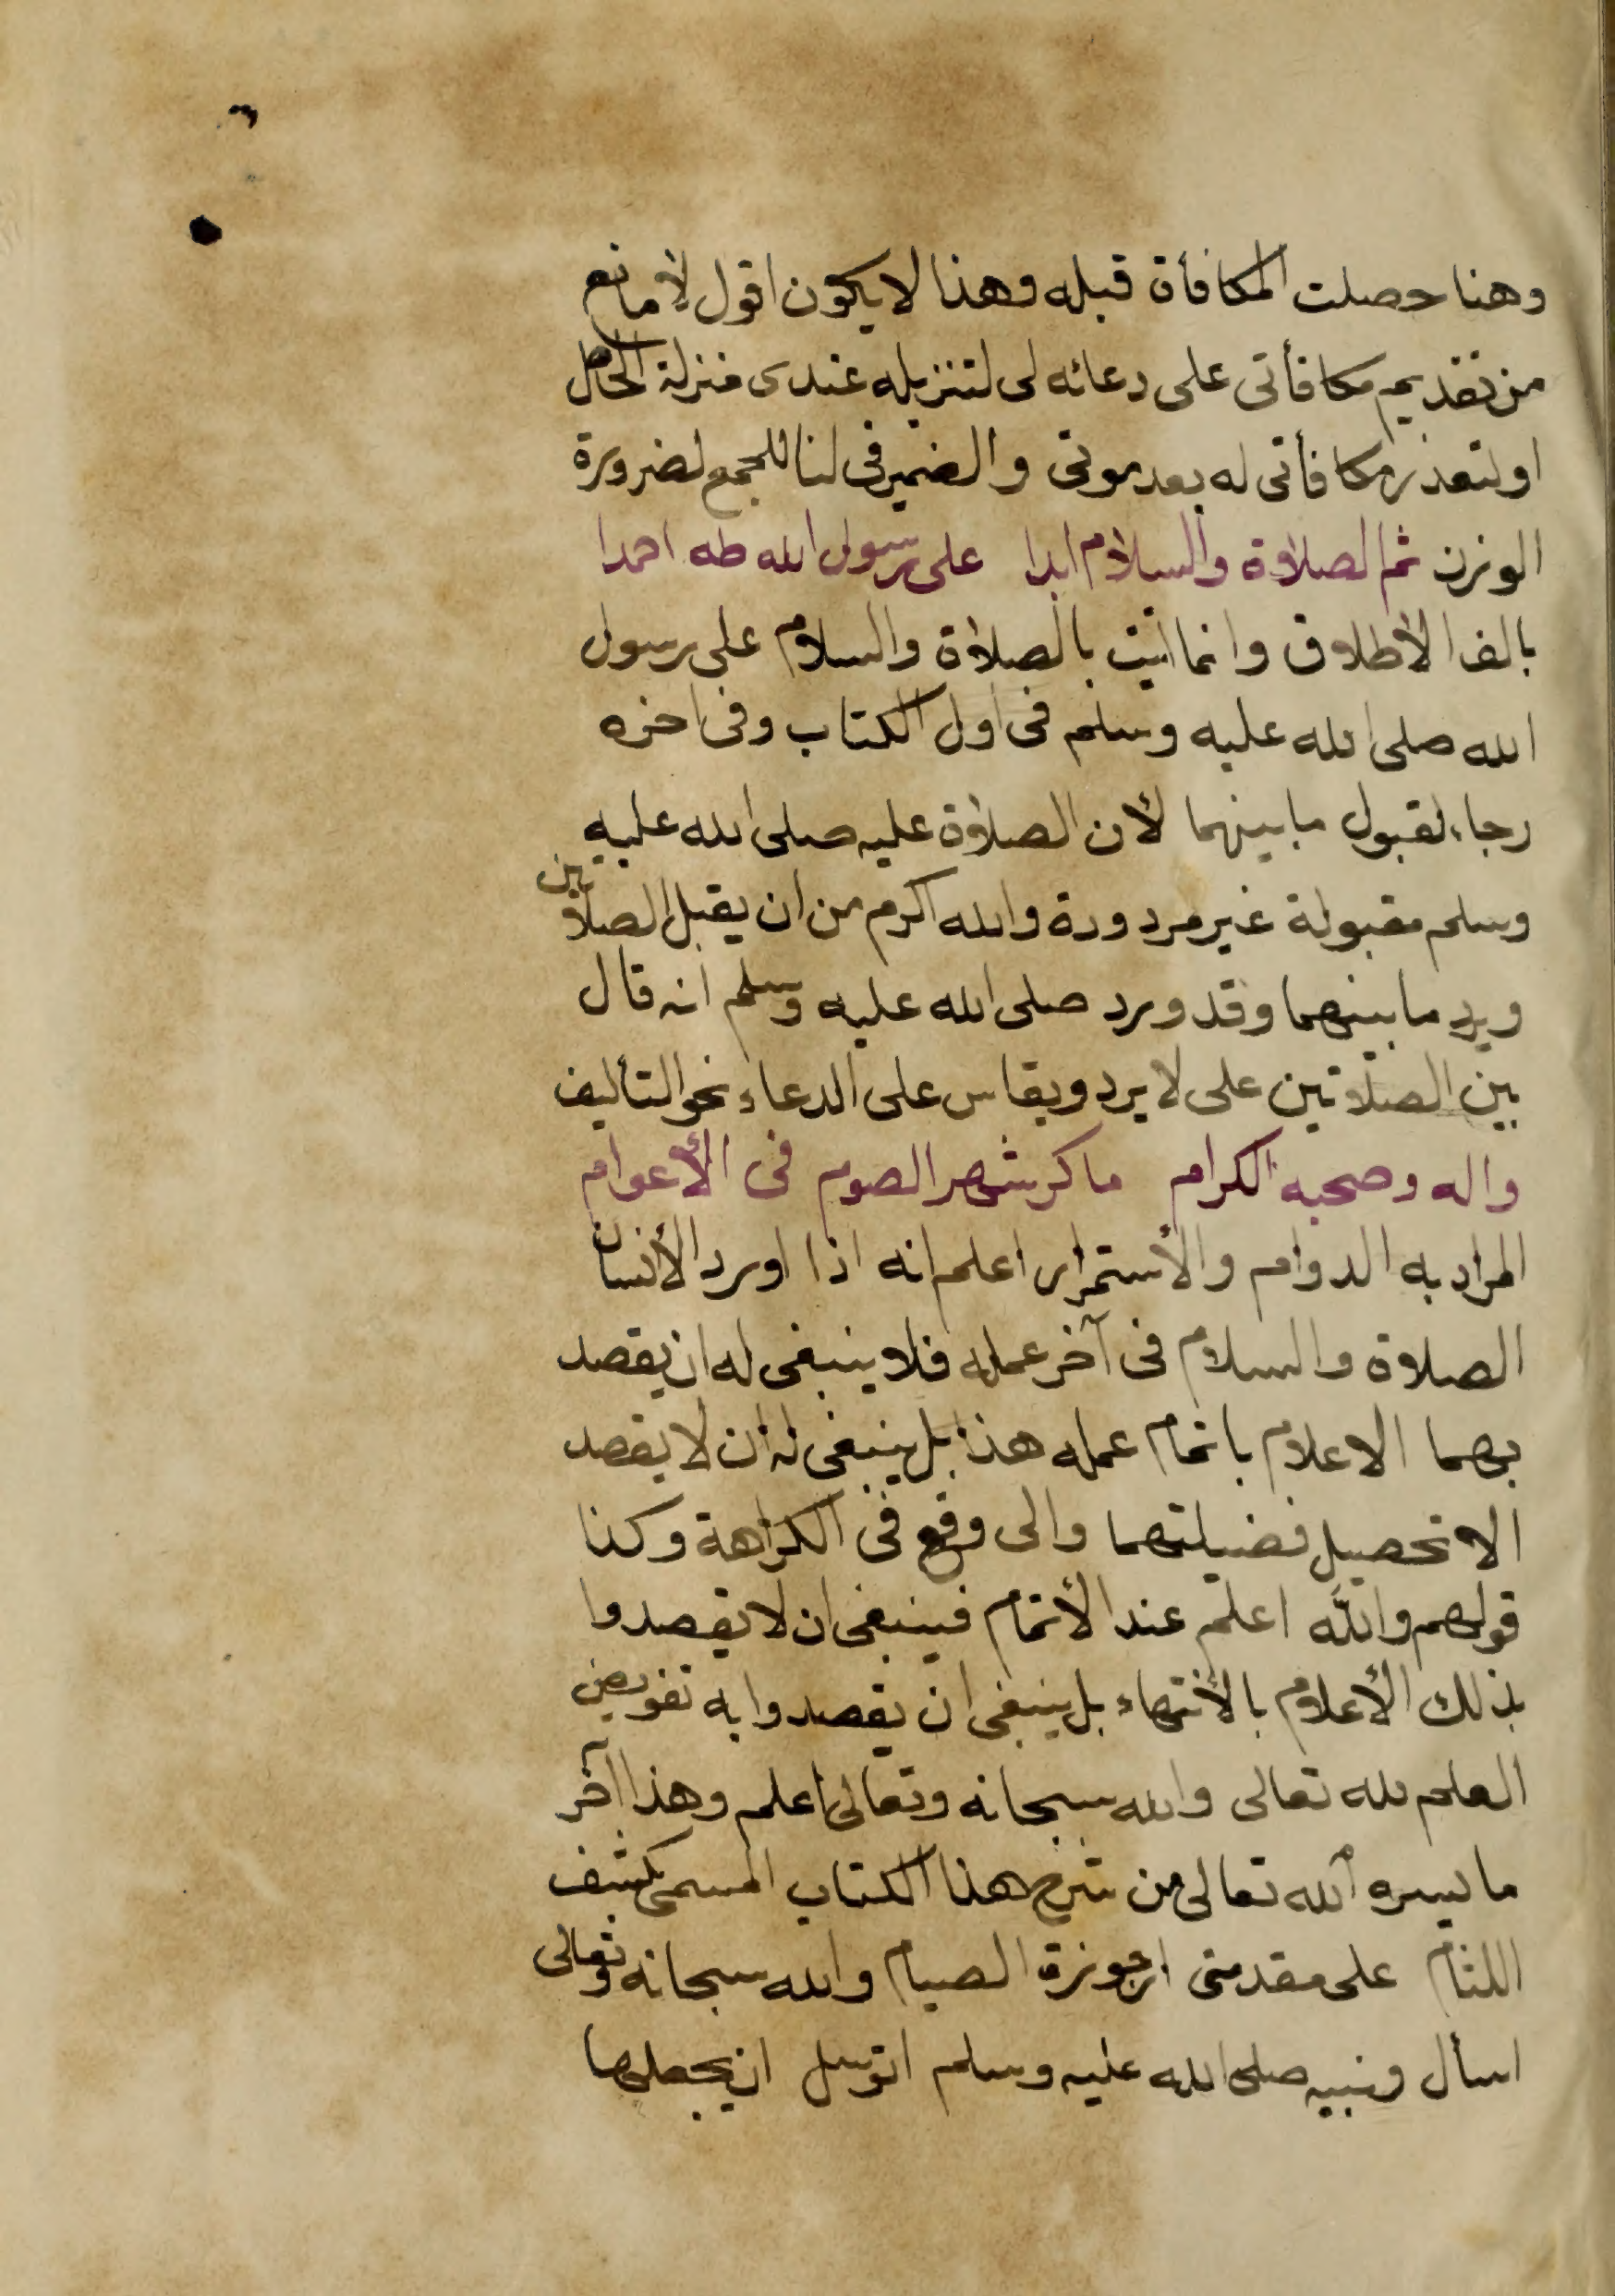 وهنا حصلت المكافأة قبله وهذا لا يكون اقول لا مانع
من تقديم مكافأتى على دعائه لى لتنزيله عندى منزلة الحاصل
او لتعذر مكافأتى له بعد موتى والضمير فى لنا للجمع لضرورة
الوزن ثم الصلاة والسلام ابدا على رسول الله طه احمدا
بالف الأطلاق وانما اتيت بالصلاة والسلام على رسول
الله صلى الله عليه وسلم فى اول الكتاب وفى اخره
رجاء لقبول ما بينهما لأن الصلاة عليه صلى الله عليه
وسلم مقبولة غير مردودة والله اكرم من ان يقبل الصلاتين
ويرد ما بينهما وقد ورد صلى الله عليه وسلم انه قال
بين الصلاتين على لا يرد ويقاس على الدعاء نحو التأليف
واله وصحبه الكرام ما كر شهر الصوم فى الأعوام
المراد به الدوام والأستمرار اعلم انه اذا اورد الأنسان
الصلاة والسلام فى آخر عمله فلا ينبغى له ان يقصد
بهما الاعلام باتمام عمله هذا بل ينبغى له ان لا يقصد
الا تحصيل فضيلتهما والى وقع فى الكراهة وكذا
قولهم والله اعلم عند الأتمام فينبغى ان لا يقصدوا
بذلك الأعلام بالأنتهاء بل ينبغى ان يقصدوا به تفويض
العلم لله تعالى والله سبحانه وتعالى اعلم وهذا آخر
ما يسره الله تعالى من شرح هذا الكتاب المسمى بكشف
اللثام على مقدمتى ارجوزة الصيام والله سبحانه وتعالى
اسأل وبنبيه صلى الله عليه وسلم اتوسل ان يجعلها